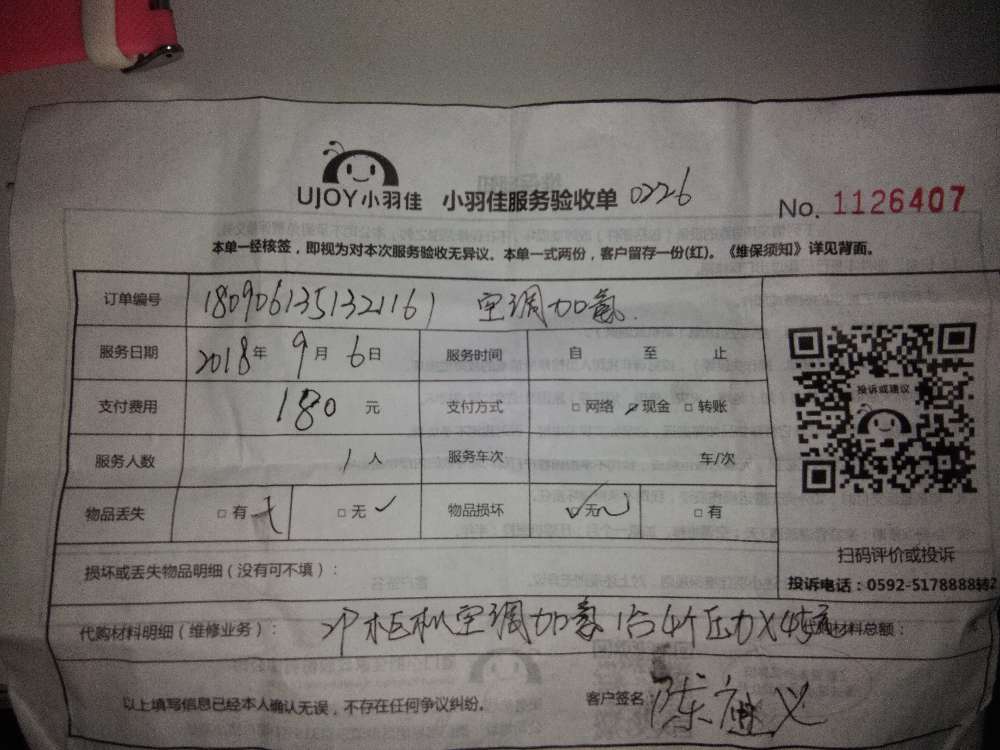 UJOY小羽佳 小羽佳服务验收单 0226 No. 1126407
本单一经核签，即视为对本次服务验收无异议。本单一式两份，客户留存一份(红)。《维保须知》详见背面。
订单编号 1809061351321161 空调加氟
服务日期 2018年 9月 6日 服务时间 自 至 止
支付费用 180 元 支付方式 □网络 ☑现金 □转账
投诉或建议
服务人数 1人 服务车次 车/次
物品丢失 □有 □无✓ 物品损坏 ☑无 □有
扫码评价或投诉
损坏或丢失物品明细（没有可不填）：
投诉电话：0592-5178888转2
代购材料明细（维修业务）： 柜机空调加氟1台4个压力X45元 代购材料总额：
以上填写信息已经本人确认无误，不存在任何争议纠纷。 客户签名 陈